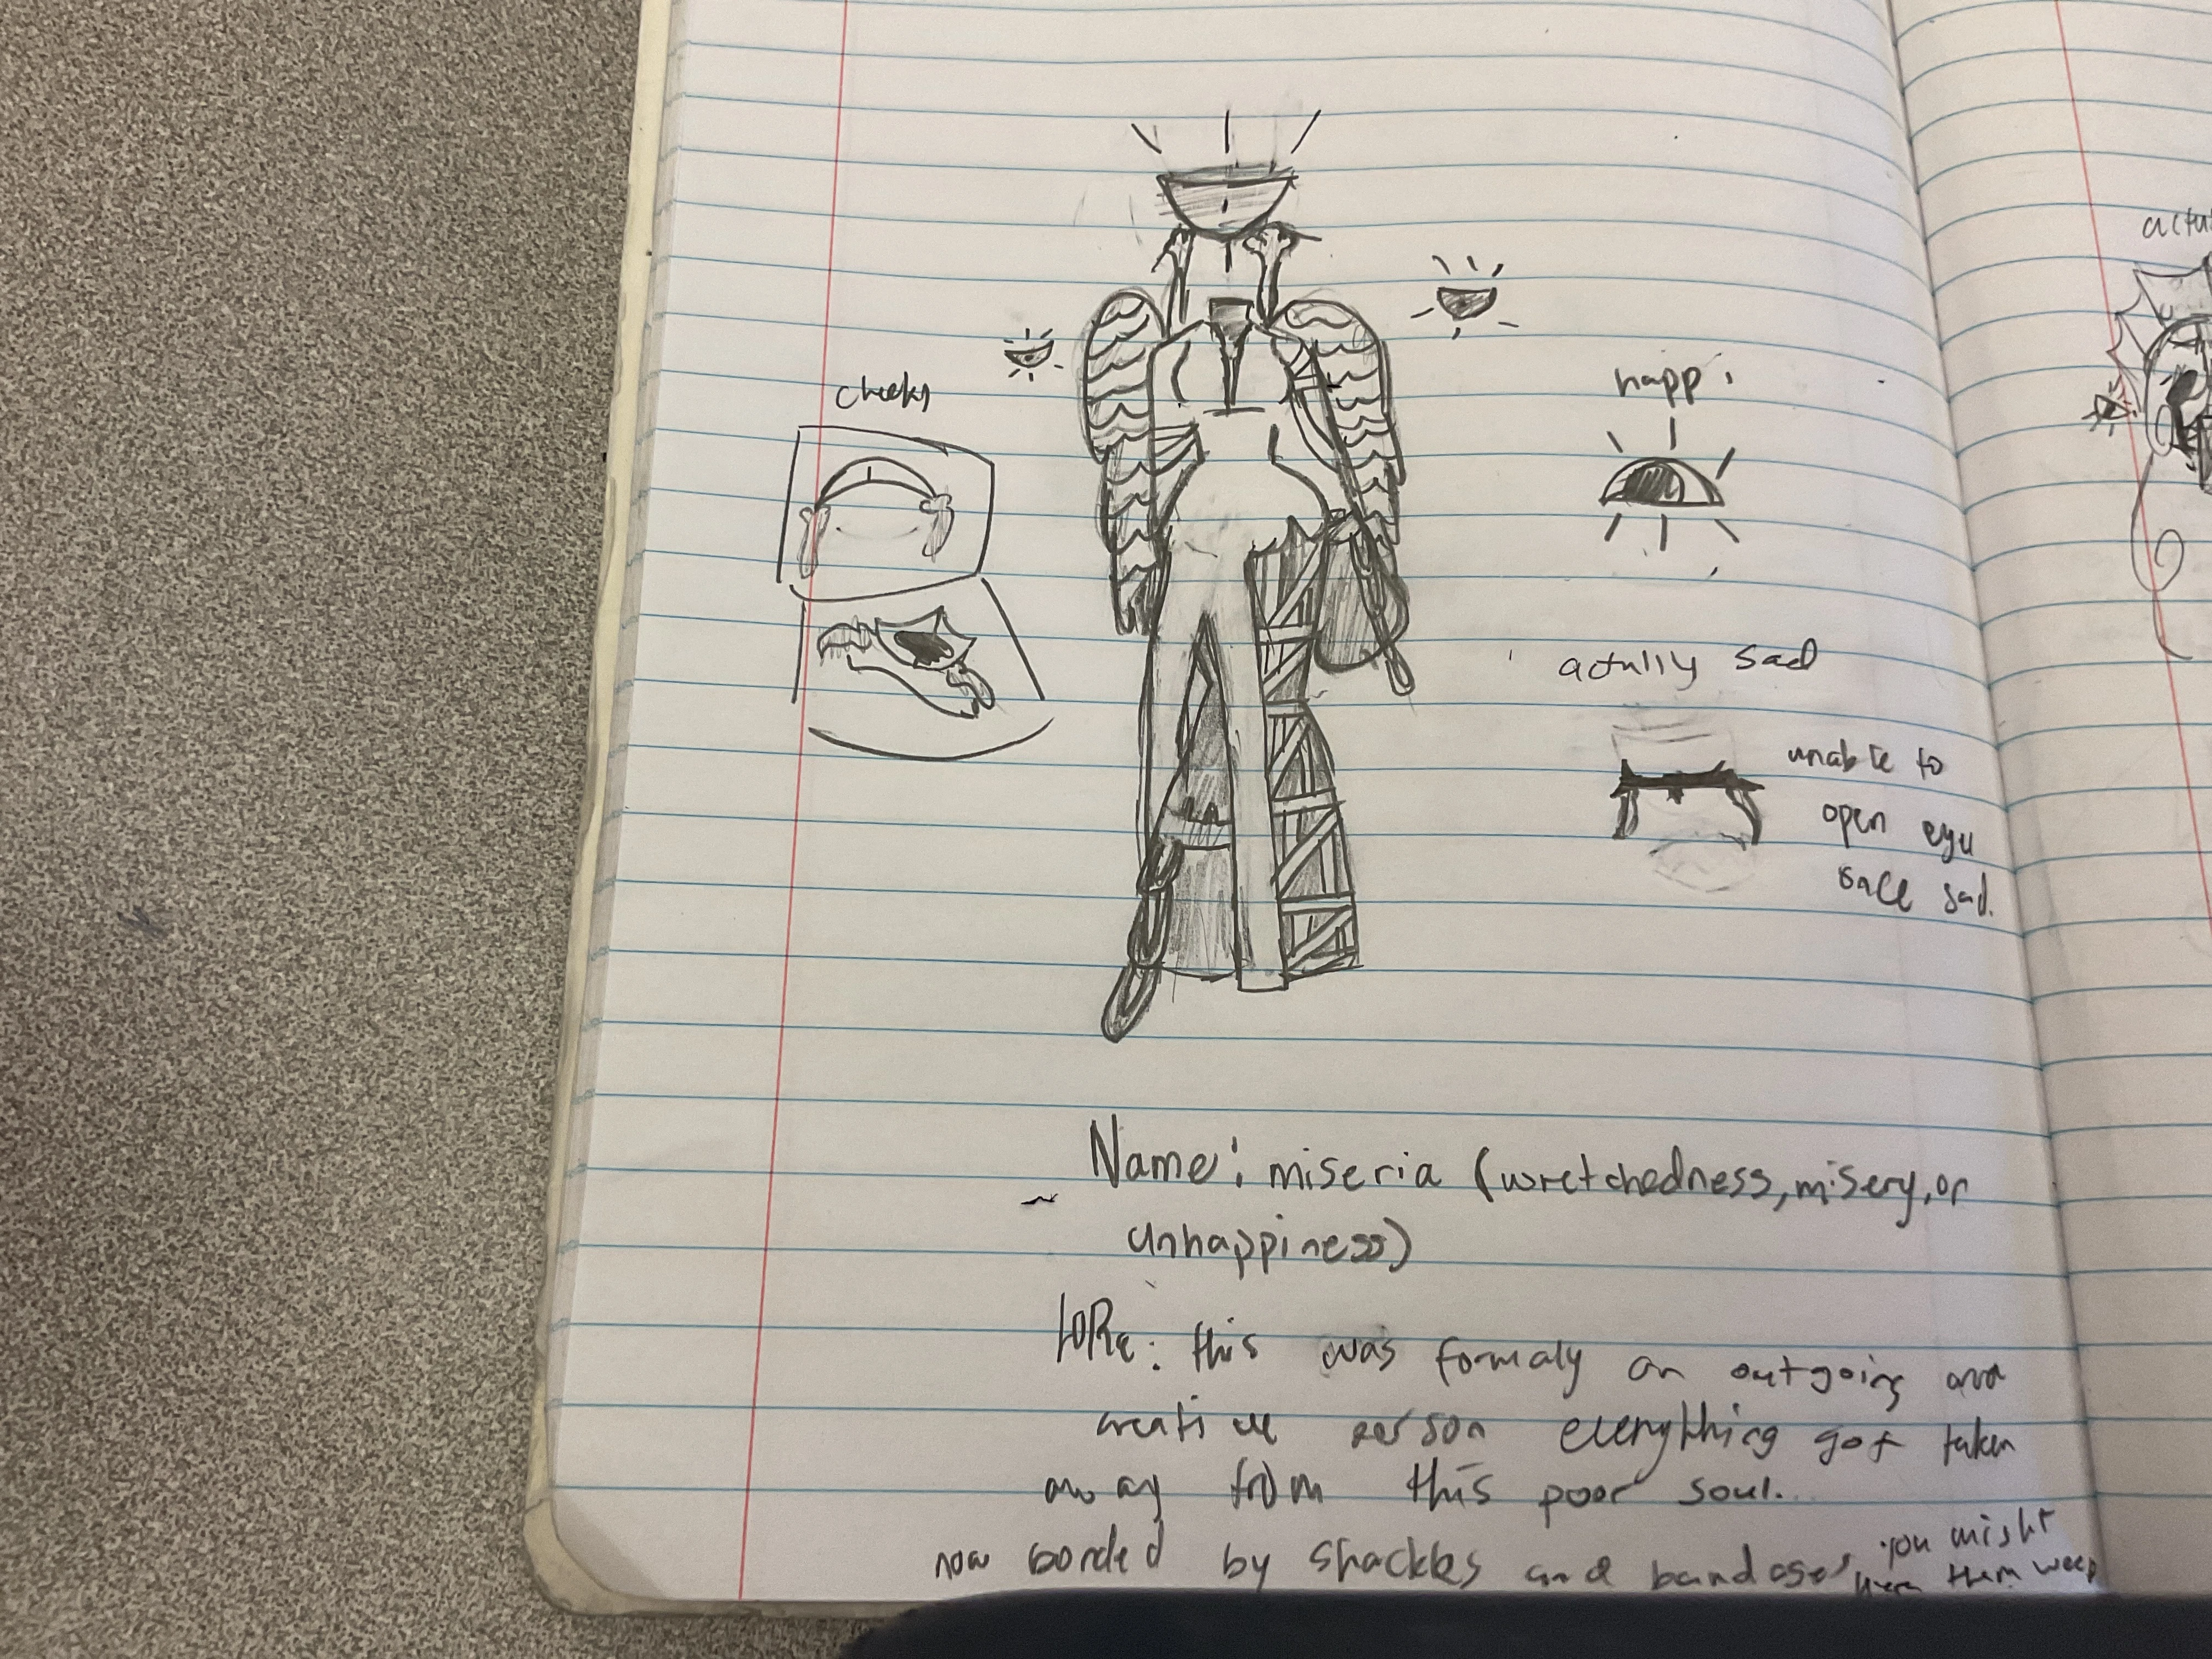 cheeks
happi
actully sad
unable to
open eye
sad.
Name: miseria (wretchedness, misery, or
unhappiness)
LORe: this was formaly an outgoing and
creative person everything got taken
away from this poor soul.
now bonded by shackles and bandages, you might
hear them weep
actu